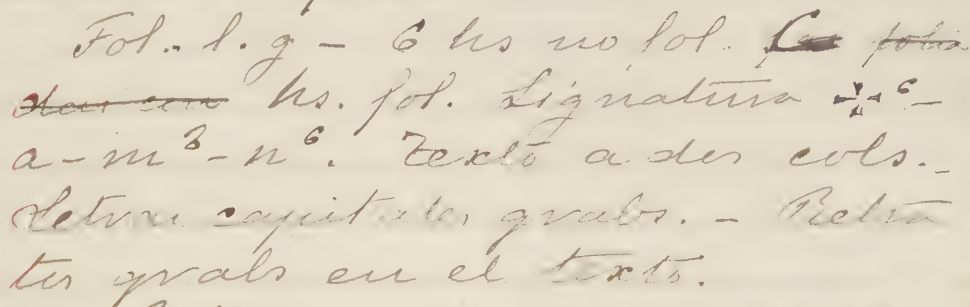 Fol.. l. g - 6 hs no fol. folia
hs. fol. Signatura ✠⁶-
a-m⁸-n⁶. Texto a dos cols.-
Letras capitales grabs. - Retra
tos grabs en el texto.